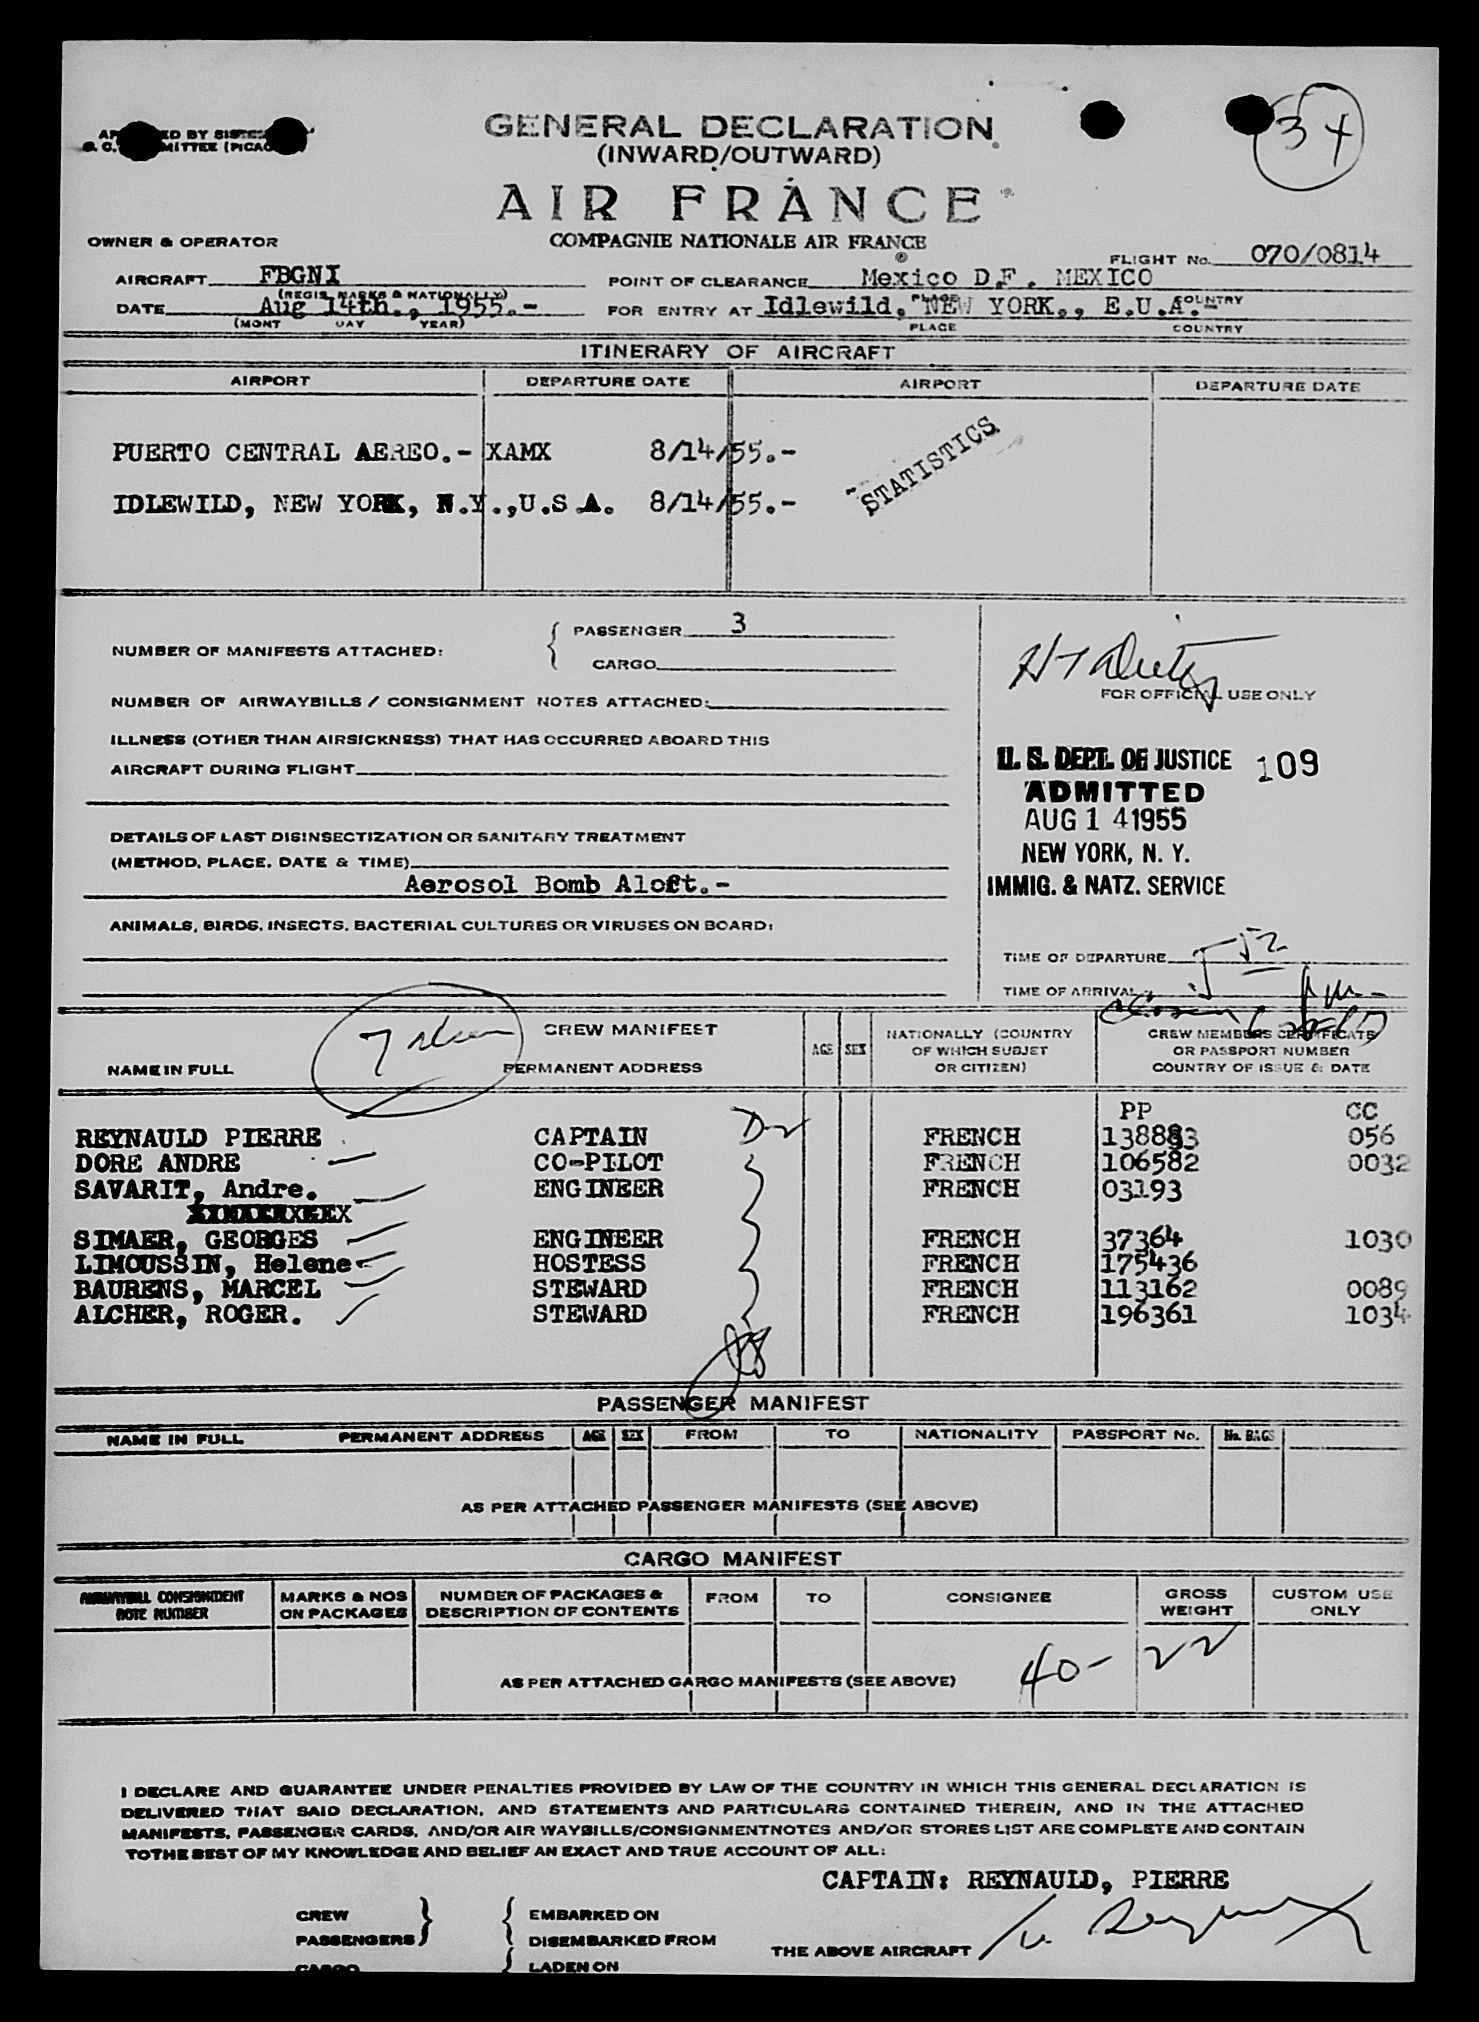 GENERAL DECLARATION
(INWARD/OUTWARD)
34
AIR FRANCE
OWNER & OPERATOR COMPAGNIE NATIONALE AIR FRANCE
FLIGHT No. 070/0814
AIRCRAFT FBGNI POINT OF CLEARANCE Mexico D.F. MEXICO
(REGIS. MARKS & NATIONALLY) PLACE COUNTRY
DATE Aug 14th., 1955.- FOR ENTRY AT Idlewild, NEW YORK., E.U.A.-
(MONT DAY YEAR) PLACE COUNTRY
ITINERARY OF AIRCRAFT
AIRPORT DEPARTURE DATE AIRPORT DEPARTURE DATE
PUERTO CENTRAL AEREO.- XAMX 8/14/55.-
STATISTICS
IDLEWILD, NEW YORK, N.Y.,U.S.A. 8/14/55.-
NUMBER OF MANIFESTS ATTACHED: { PASSENGER 3
CARGO
FOR OFFICIAL USE ONLY
NUMBER OF AIRWAYBILLS / CONSIGNMENT NOTES ATTACHED:
ILLNESS (OTHER THAN AIRSICKNESS) THAT HAS OCCURRED ABOARD THIS
AIRCRAFT DURING FLIGHT
U. S. DEPT. OF JUSTICE 109
ADMITTED
AUG 14 1955
NEW YORK, N. Y.
IMMIG. & NATZ. SERVICE
DETAILS OF LAST DISINSECTIZATION OR SANITARY TREATMENT
(METHOD, PLACE, DATE & TIME)
Aerosol Bomb Aloft.-
ANIMALS, BIRDS, INSECTS, BACTERIAL CULTURES OR VIRUSES ON BOARD:
TIME OF DEPARTURE
TIME OF ARRIVAL
CREW MANIFEST
NAME IN FULL PERMANENT ADDRESS AGE SEX NATIONALLY (COUNTRY OF WHICH SUBJET OR CITIZEN) CREW MEMBERS CERTIFICATE OR PASSPORT NUMBER COUNTRY OF ISSUE & DATE
PP CC
REYNAULD PIERRE CAPTAIN FRENCH 138883 056
DORE ANDRE CO-PILOT FRENCH 106582 0032
SAVARIT, Andre. ENGINEER FRENCH 03193
SIMAER, GEORGES ENGINEER FRENCH 37364 1030
LIMOUSSIN, Helene HOSTESS FRENCH 175436
BAURENS, MARCEL STEWARD FRENCH 113162 0089
ALCHER, ROGER. STEWARD FRENCH 196361 1034
PASSENGER MANIFEST
NAME IN FULL PERMANENT ADDRESS AGE SEX FROM TO NATIONALITY PASSPORT No. No. BAGS
AS PER ATTACHED PASSENGER MANIFESTS (SEE ABOVE)
CARGO MANIFEST
AIRWAYBILL CONSIGNMENT NOTE NUMBER MARKS & NOS ON PACKAGES NUMBER OF PACKAGES & DESCRIPTION OF CONTENTS FROM TO CONSIGNEE GROSS WEIGHT CUSTOM USE ONLY
AS PER ATTACHED CARGO MANIFESTS (SEE ABOVE) 40- 22
I DECLARE AND GUARANTEE UNDER PENALTIES PROVIDED BY LAW OF THE COUNTRY IN WHICH THIS GENERAL DECLARATION IS
DELIVERED THAT SAID DECLARATION, AND STATEMENTS AND PARTICULARS CONTAINED THEREIN, AND IN THE ATTACHED
MANIFESTS, PASSENGER CARDS, AND/OR AIR WAYBILLS/CONSIGNMENTNOTES AND/OR STORES LIST ARE COMPLETE AND CONTAIN
TO THE BEST OF MY KNOWLEDGE AND BELIEF AN EXACT AND TRUE ACCOUNT OF ALL:
CAPTAIN: REYNAULD, PIERRE
CREW } { EMBARKED ON
PASSENGERS } { DISEMBARKED FROM
THE ABOVE AIRCRAFT
CARGO { LADEN ON